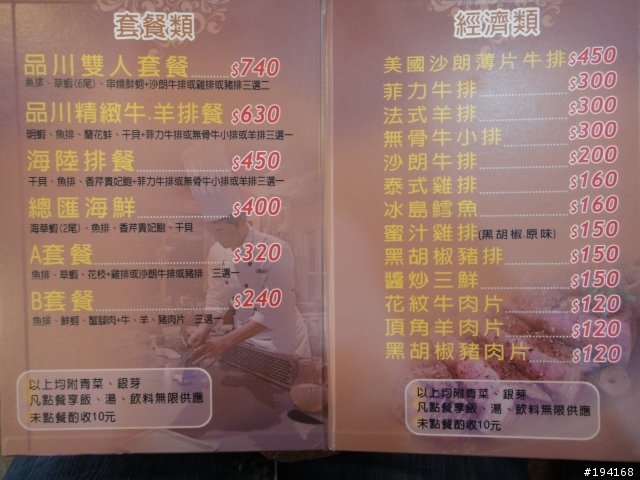 套餐類
品川雙人套餐 $740
魚排、草蝦(6尾)、串燒鮮蚵+沙朗牛排或雞排或豬排三選二
品川精緻牛.羊排餐 $630
明蝦、魚排、蘭花蚌、干貝+菲力牛排或無骨牛小排或羊排三選一
海陸排餐 $450
干貝、魚排、香芹貴妃鮑+菲力牛排或無骨牛小排或羊排三選一
總匯海鮮 $400
海草蝦(2尾)、魚排、香芹貴妃鮑、干貝
A套餐 $320
魚排、草蝦、花枝+雞排或沙朗牛排或豬排 三選一
B套餐 $240
魚排、鮮蚵、蟹腳肉+牛、羊、豬肉片 三選一
以上均附青菜、銀芽
凡點餐享飯、湯、飲料無限供應
未點餐酌收10元
經濟類
美國沙朗薄片牛排 $450
菲力牛排 $300
法式羊排 $300
無骨牛小排 $300
沙朗牛排 $200
泰式雞排 $160
冰島鱈魚 $160
蜜汁雞排(黑胡椒.原味) $150
黑胡椒豬排 $150
醬炒三鮮 $150
花紋牛肉片 $120
頂角羊肉片 $120
黑胡椒豬肉片 $120
以上均附青菜、銀芽
凡點餐享飯、湯、飲料無限供應
未點餐酌收10元
#194168